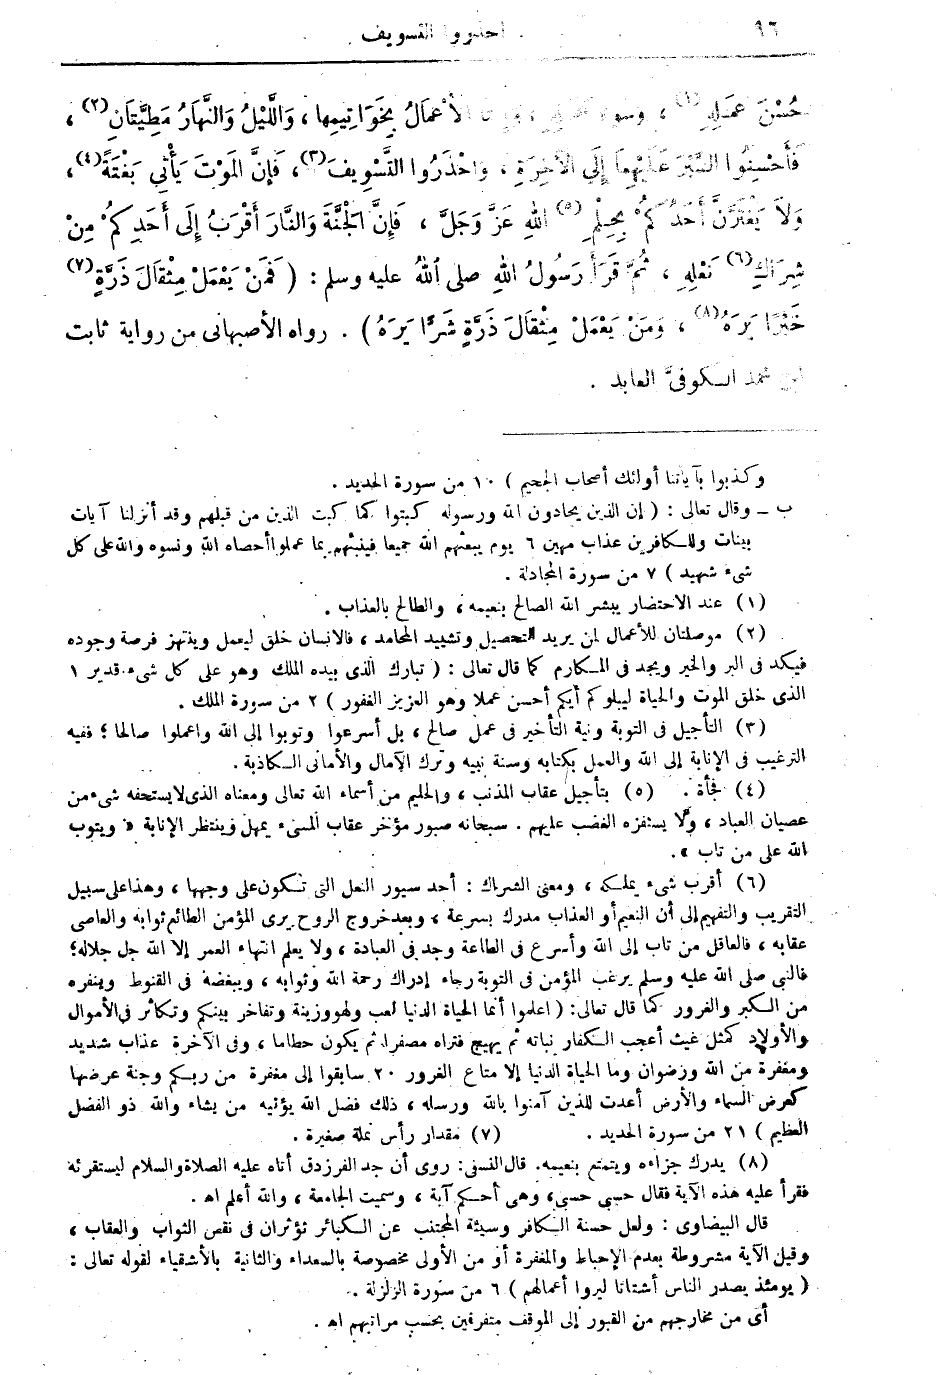 ٩٦ احذروا التسويف
حُسْنَ عَمَلِهِ(١) ، وسوء ، الأَعْمَالُ بِخَوَاتِيمِهَا ، وَاللَّيْلُ وَالنَّهَارُ مَطِيَّتَانِ(٢) ،
فَأَحْسِنُوا السَّيْرَ عَلَيْهِمَا إِلَى الآخِرَةِ ، وَاحْذَرُوا التَّسْوِيفَ(٣) ، فَإِنَّ المَوْتَ يَأْتِي بَغْتَةً(٤) ،
وَلاَ يَغْتَرَّنَّ أَحَدُكُمْ بِحِلْمِ(٥) اللهِ عَزَّ وَجَلَّ ، فَإِنَّ الْجَنَّةَ وَالنَّارَ أَقْرَبُ إِلَى أَحَدِكُمْ مِنْ
شِرَاكِ(٦) نَعْلِهِ ، ثُمَّ قَرَأَ رَسُولُ اللهِ صلى اللهُ عليه وسلم : ( فَمَنْ يَعْمَلْ مِثْقَالَ ذَرَّةٍ(٧)
خَيْرًا يَرَهُ(٨) ، وَمَنْ يَعْمَلْ مِثْقَالَ ذَرَّةٍ شَرًّا يَرَهُ ) . رواه الأصبهانى من رواية ثابت
ابن محمد الكوفىِّ العابد .
وكذبوا بآياتنا أولئك أصحاب الجحيم ) ١٠ من سورة الحديد .
ب ـ وقال تعالى : ( إن الذين يحادون الله ورسوله كبتوا كما كبت الذين من قبلهم وقد أنزلنا آيات
بينات وللكافرين عذاب مهين ٦ يوم يبعثهم الله جميعا فينبئهم بما عملوا أحصاه الله ونسوه والله على كل
شىء شهيد ) ٧ من سورة المجادلة .
(١) عند الاحتضار يبشر الله الصالح بنعيمه ، والطالح بالعذاب .
(٢) موصلتان للأعمال لمن يريد التحصيل وتشييد المحامد ، فالانسان خلق ليعمل وينتهز فرصة وجوده
فيكد فى البر والخير ويجد فى المكارم كما قال تعالى : ( تبارك الذى بيده الملك وهو على كل شىء قدير ١
الذى خلق الموت والحياة ليبلوكم أيكم أحسن عملا وهو العزيز الغفور ) ٢ من سورة الملك .
(٣) التأجيل فى التوبة ونية التأخير فى عمل صالح ، بل أسرعوا وتوبوا إلى الله واعملوا صالحا ؛ ففيه
الترغيب فى الإنابة إلى الله والعمل بكتابه وسنة نبيه وترك الآمال والأمانى الكاذبة .
(٤) فجأة . (٥) بتأجيل عقاب المذنب ، والحليم من أسماء الله تعالى ومعناه الذى لا يستخفه شىء من
عصيان العباد ، ولا يستفزه الغضب عليهم . سبحانه صبور مؤخر عقاب المسىء يمهل وينتظر الإنابة « ويتوب
الله على من تاب » .
(٦) أقرب شىء يملكه ، ومعنى الشراك : أحد سيور النعل التى تكون على وجهها ، وهذا على سبيل
التقريب والتفهيم إلى أن النعيم أو العذاب مدرك بسرعة ، وبعد خروج الروح يرى المؤمن الطائع ثوابه والعاصى
عقابه ، فالعاقل من تاب إلى الله وأسرع فى الطاعة وجد فى العبادة ، ولا يعلم انتهاء العمر إلا الله جل جلاله ؛
فالنبى صلى الله عليه وسلم يرغب المؤمن فى التوبة رجاء إدراك رحمة الله وثوابه ، ويبغضه فى القنوط وينفره
من الكبر والغرور كما قال تعالى : ( اعلموا أنما الحياة الدنيا لعب ولهو وزينة وتفاخر بينكم وتكاثر فى الأموال
والأولاد كمثل غيث أعجب الكفار نباته ثم يهيج فتراه مصفرا ثم يكون حطاما ، وفى الآخرة عذاب شديد
ومغفرة من الله ورضوان وما الحياة الدنيا إلا متاع الغرور ٢٠ سابقوا إلى مغفرة من ربكم وجنة عرضها
كعرض السماء والأرض أعدت للذين آمنوا بالله ورسله ، ذلك فضل الله يؤتيه من يشاء والله ذو الفضل
العظيم ) ٢١ من سورة الحديد . (٧) مقدار رأس نملة صغيرة .
(٨) يدرك جزاءه ويتمتع بنعيمه . قال النسفى : روى أن جد الفرزدق أتاه عليه الصلاة والسلام ليستقرئه
فقرأ عليه هذه الآية فقال حسبى حسبى ، وهى أحكم آية ، وسميت الجامعة ، والله أعلم اهـ .
قال البيضاوى : ولعل حسنة الكافر وسيئة المجتنب عن الكبائر تؤثران فى نقص الثواب والعقاب ،
وقيل الآية مشروطة بعدم الإحباط والمغفرة أو من الأولى مخصوصة بالسعداء والثانية بالأشقياء لقوله تعالى :
( يومئذ يصدر الناس أشتاتا ليروا أعمالهم ) ٦ من سورة الزلزلة .
أى من مخارجهم من القبور إلى الموقف متفرقين بحسب مراتبهم اهـ .